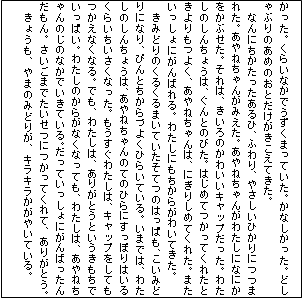 かった。くらいなかでうずくまっていた。かなしかった。どし
ゃぶりのあめのおとだけがきこえてきた。
　なんにちかたったあるひ、ふわり、やさしいひかりにつつま
れた。あやねちゃんがみえた。あやねちゃんがわたしになにか
をかぶせた。それは、きいろのかわいいキャップだった。わた
しのしんちょうは、ぐんとのびた。はじめてつかってくれたと
きよりもつよく、あやねちゃんは、にぎりしめてくれた。また
いっしょにがんばれる。わたしにもちからがわいてきた。
　きみどりのくるくるまいていたそてつのはっぱも、こいみど
りになり、ぴんとちからづよくひらいている。いまでは、わた
しのしんちょうは、あやねちゃんのてのひらにすっぽりはいる
くらいちいさくなった。もうすぐわたしは、キャップをしても
つかえなくなる。でも、わたしは、ありがとうというきもちで
いっぱい。わたしのからがなくなっても、わたしは、あやねち
ゃんのじのなかでいきている。だっていっしょにがんばったん
だもん。さいごまでたいせつにつかってくれて、ありがとう。
　きょうも、やまのみどりが、キラキラかがやいている。